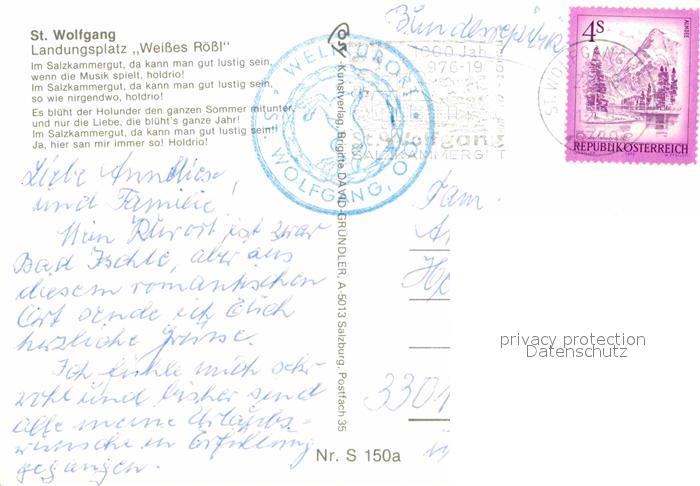 St. Wolfgang
Landungsplatz „Weißes Rößl"
Im Salzkammergut, da kann man gut lustig sein,
wenn die Musik spielt, holdrio!
Im Salzkammergut, da kann man gut lustig sein,
so wie nirgendwo, holdrio!
Es blüht der Holunder den ganzen Sommer mitunter,
und nur die Liebe, die blüht's ganze Jahr!
Im Salzkammergut, da kann man gut lustig sein!
Ja, hier san mir immer so! Holdrio!
Liebe Anneliese,
und Familie,
Mein Kurort ist zwar
Bad Ischl, aber aus
diesem romantischen
Ort sende ich Euch
herzliche Grüsse.
Ich fühle mich sehr
wohl und bisher sind
alle meine Urlaubs-
wünsche in Erfüllung
gegangen.
WELTKURORT
ST. WOLFGANG, OÖ
Kunstverlag, Brigitte DAVID-GRÜNDLER, A-5013 Salzburg, Postfach 35
Nr. S 150a
Bundesrepublik
1000 Jahre
976-19
St. Wolfgang
SALZKAMMERGUT
4S
ALMSEE
REPUBLIK ÖSTERREICH
ST. WOLFGANG
Fam.
3301
privacy protection
Datenschutz